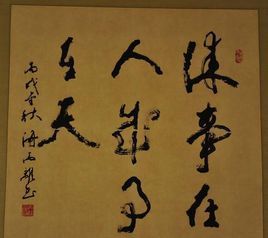 谋事在
人成事
在天
丙戌年秋